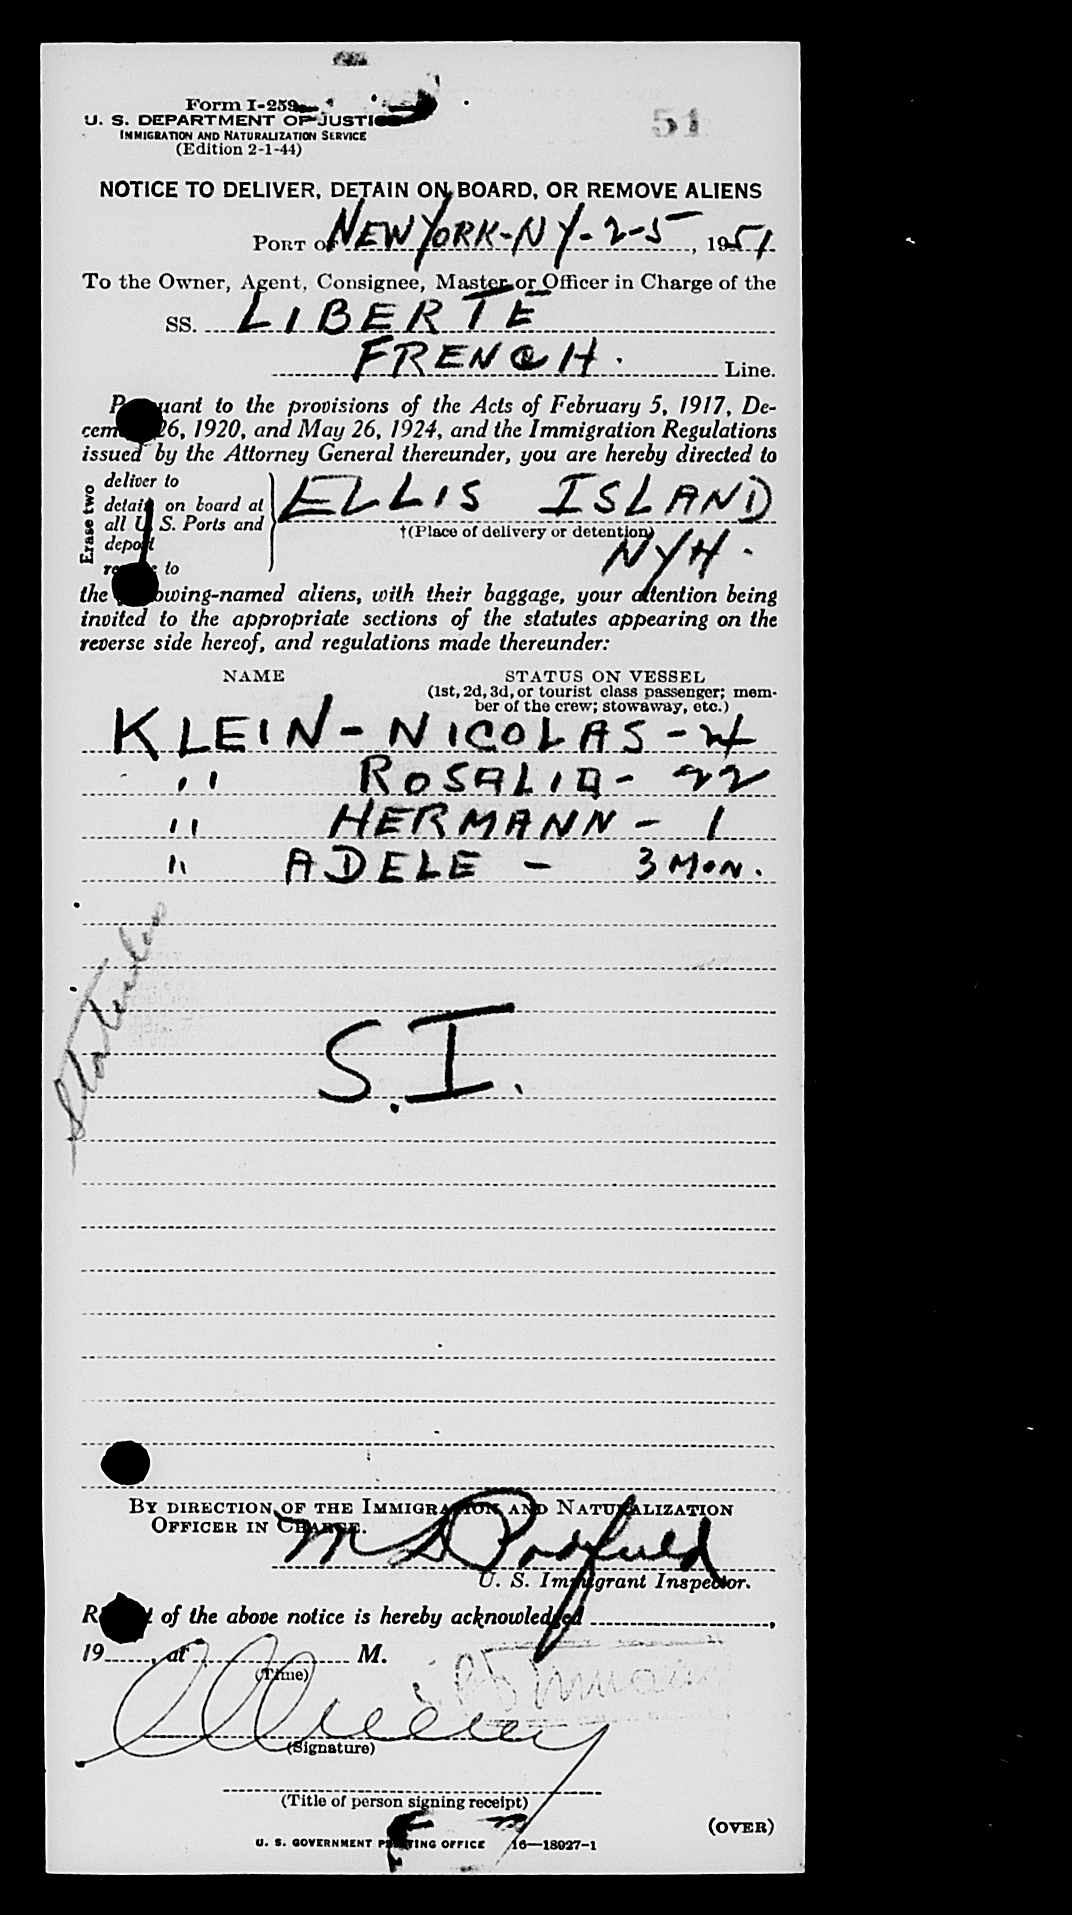 Form I-259
U. S. DEPARTMENT OF JUSTICE
IMMIGRATION AND NATURALIZATION SERVICE
(Edition 2-1-44)
51
NOTICE TO DELIVER, DETAIN ON BOARD, OR REMOVE ALIENS
PORT OF NEW YORK-NY-2-5, 1951
To the Owner, Agent, Consignee, Master or Officer in Charge of the
SS. LIBERTE
FRENCH. Line.
Pursuant to the provisions of the Acts of February 5, 1917, De-
cember 26, 1920, and May 26, 1924, and the Immigration Regulations
issued by the Attorney General thereunder, you are hereby directed to
Erase two
deliver to
detain on board at
all U. S. Ports and
deport
remove to
ELLIS ISLAND
†(Place of delivery or detention)
NYH.
the following-named aliens, with their baggage, your attention being
invited to the appropriate sections of the statutes appearing on the
reverse side hereof, and regulations made thereunder:
NAME STATUS ON VESSEL
(1st, 2d, 3d, or tourist class passenger; mem-
ber of the crew; stowaway, etc.)
KLEIN - NICOLAS -
" ROSALIA - 22
" HERMANN - 1
" ADELE - 3 MON.
S.I.
BY DIRECTION OF THE IMMIGRATION AND NATURALIZATION
OFFICER IN CHARGE.
U. S. Immigrant Inspector.
Receipt of the above notice is hereby acknowledged ,
19 , at M.
(Time)
(Signature)
(Title of person signing receipt)
(OVER)
U. S. GOVERNMENT PRINTING OFFICE 16—18027-1